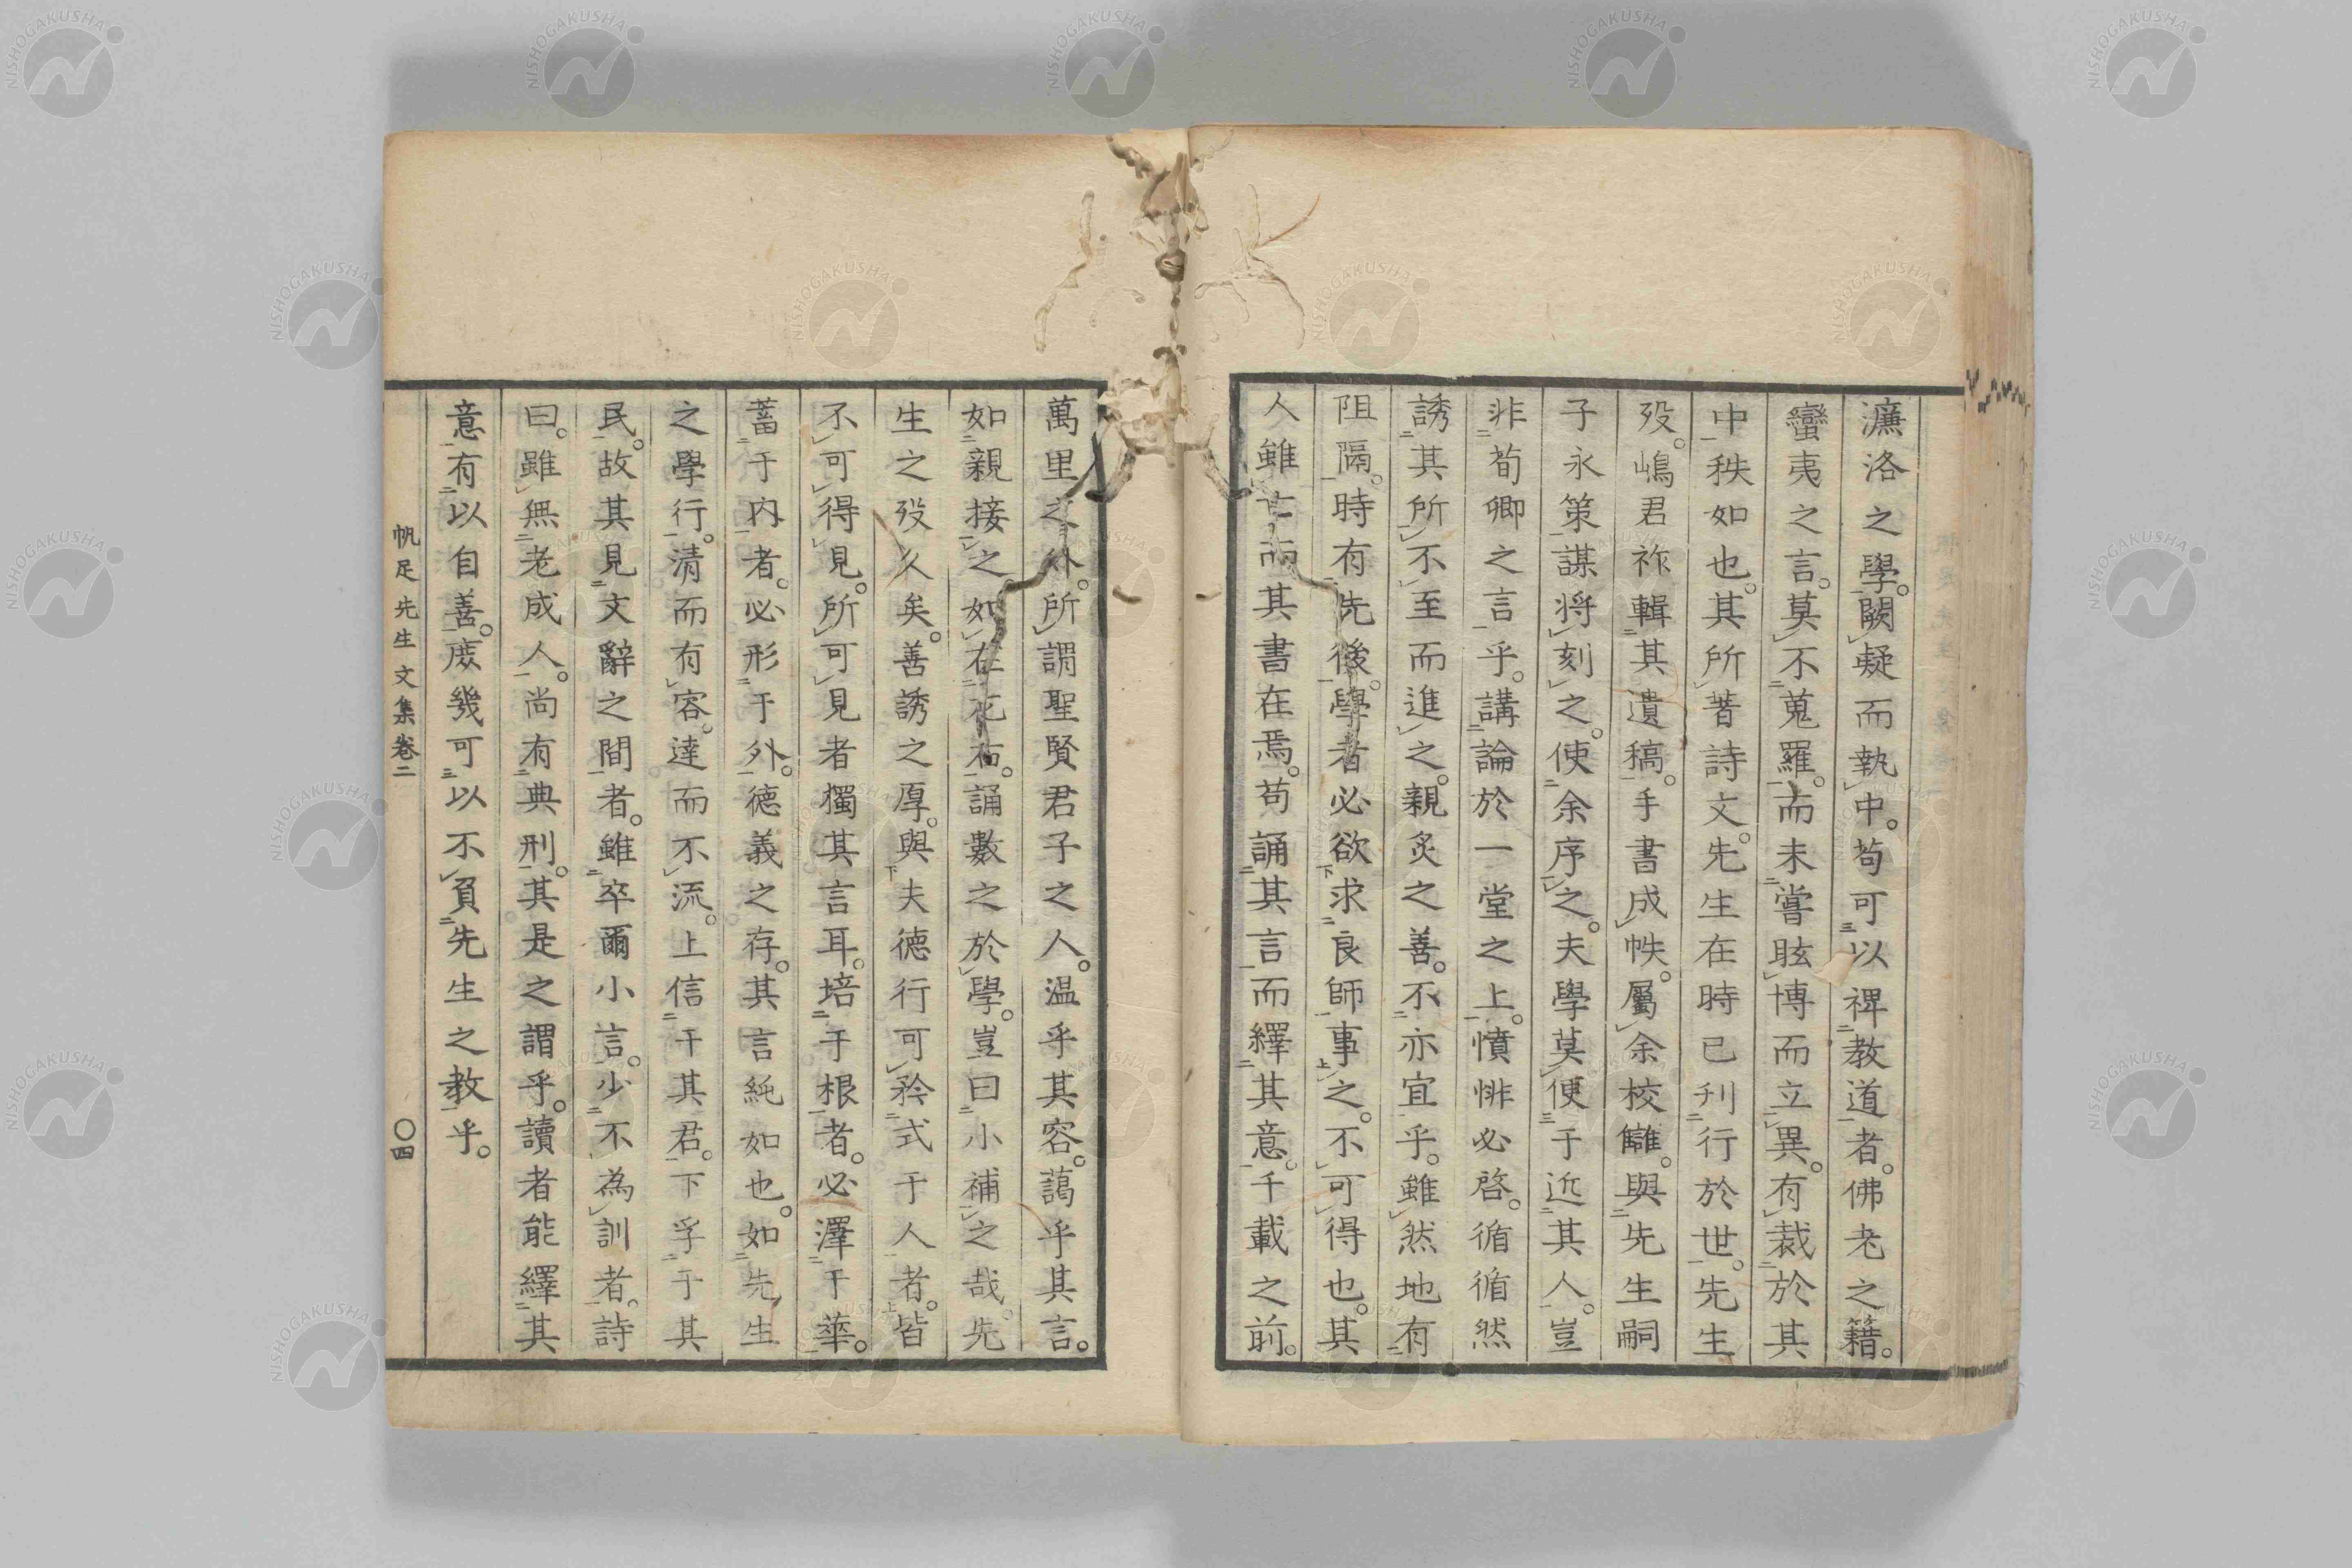 濂洛之學。闕疑而執中。苟可以裨教道者。佛老之籍。
蠻夷之言。莫不蒐羅。而未嘗眩博而立異。有裁於其
中秩如也。其所著詩文。先生在時已刊行於世。先生
歿。嶋君祚輯其遺稿。手書成帙。屬余校讎。與先生嗣
子永策謀將刻之。使余序之。夫學莫便于近其人。豈
非荀卿之言乎。講論於一堂之上。憤悱必啓。循循然
誘其所不至而進之。親炙之善。不亦宜乎。雖然地有
阻隔。時有先後。學者必欲求良師事之。不可得也。其
人雖亡而其書在焉。苟誦其言而繹其意。千載之前。
萬里之外。所謂聖賢君子之人。温乎其容。藹乎其言。
如親接之。如在左右。誦數之於學。豈曰小補之哉。先
生之歿久矣。善誘之厚。與夫德行可矜式于人者。皆
不可得見。所可見者獨其言耳。培于根者。必澤于華。
蓄于内者。必形于外。德義之存。其言純如也。如先生
之學行。清而有容。達而不流。上信于其君。下孚于其
民。故其見文辭之間者。雖卒爾小言。少不為訓者。詩
曰。雖無老成人。尚有典刑。其是之謂乎。讀者能繹其
意有以自善。庶幾可以不負先生之教乎。
帆足先生文集卷二 〇四
NISHOGAKUSHA